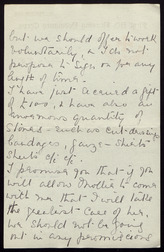 but we should offer to work
voluntarily, & I do not
propose to sign on for any
length of time.
I have just received a gift
of £100, & have also an
enormous quantity of
stores - such as cut dressings
bandages, gauze - sheets
shirts &c &c.
I promise you that if you
will allow Mollie to come
with me that I will take
the greatest care of her,
we should not be going
out in any